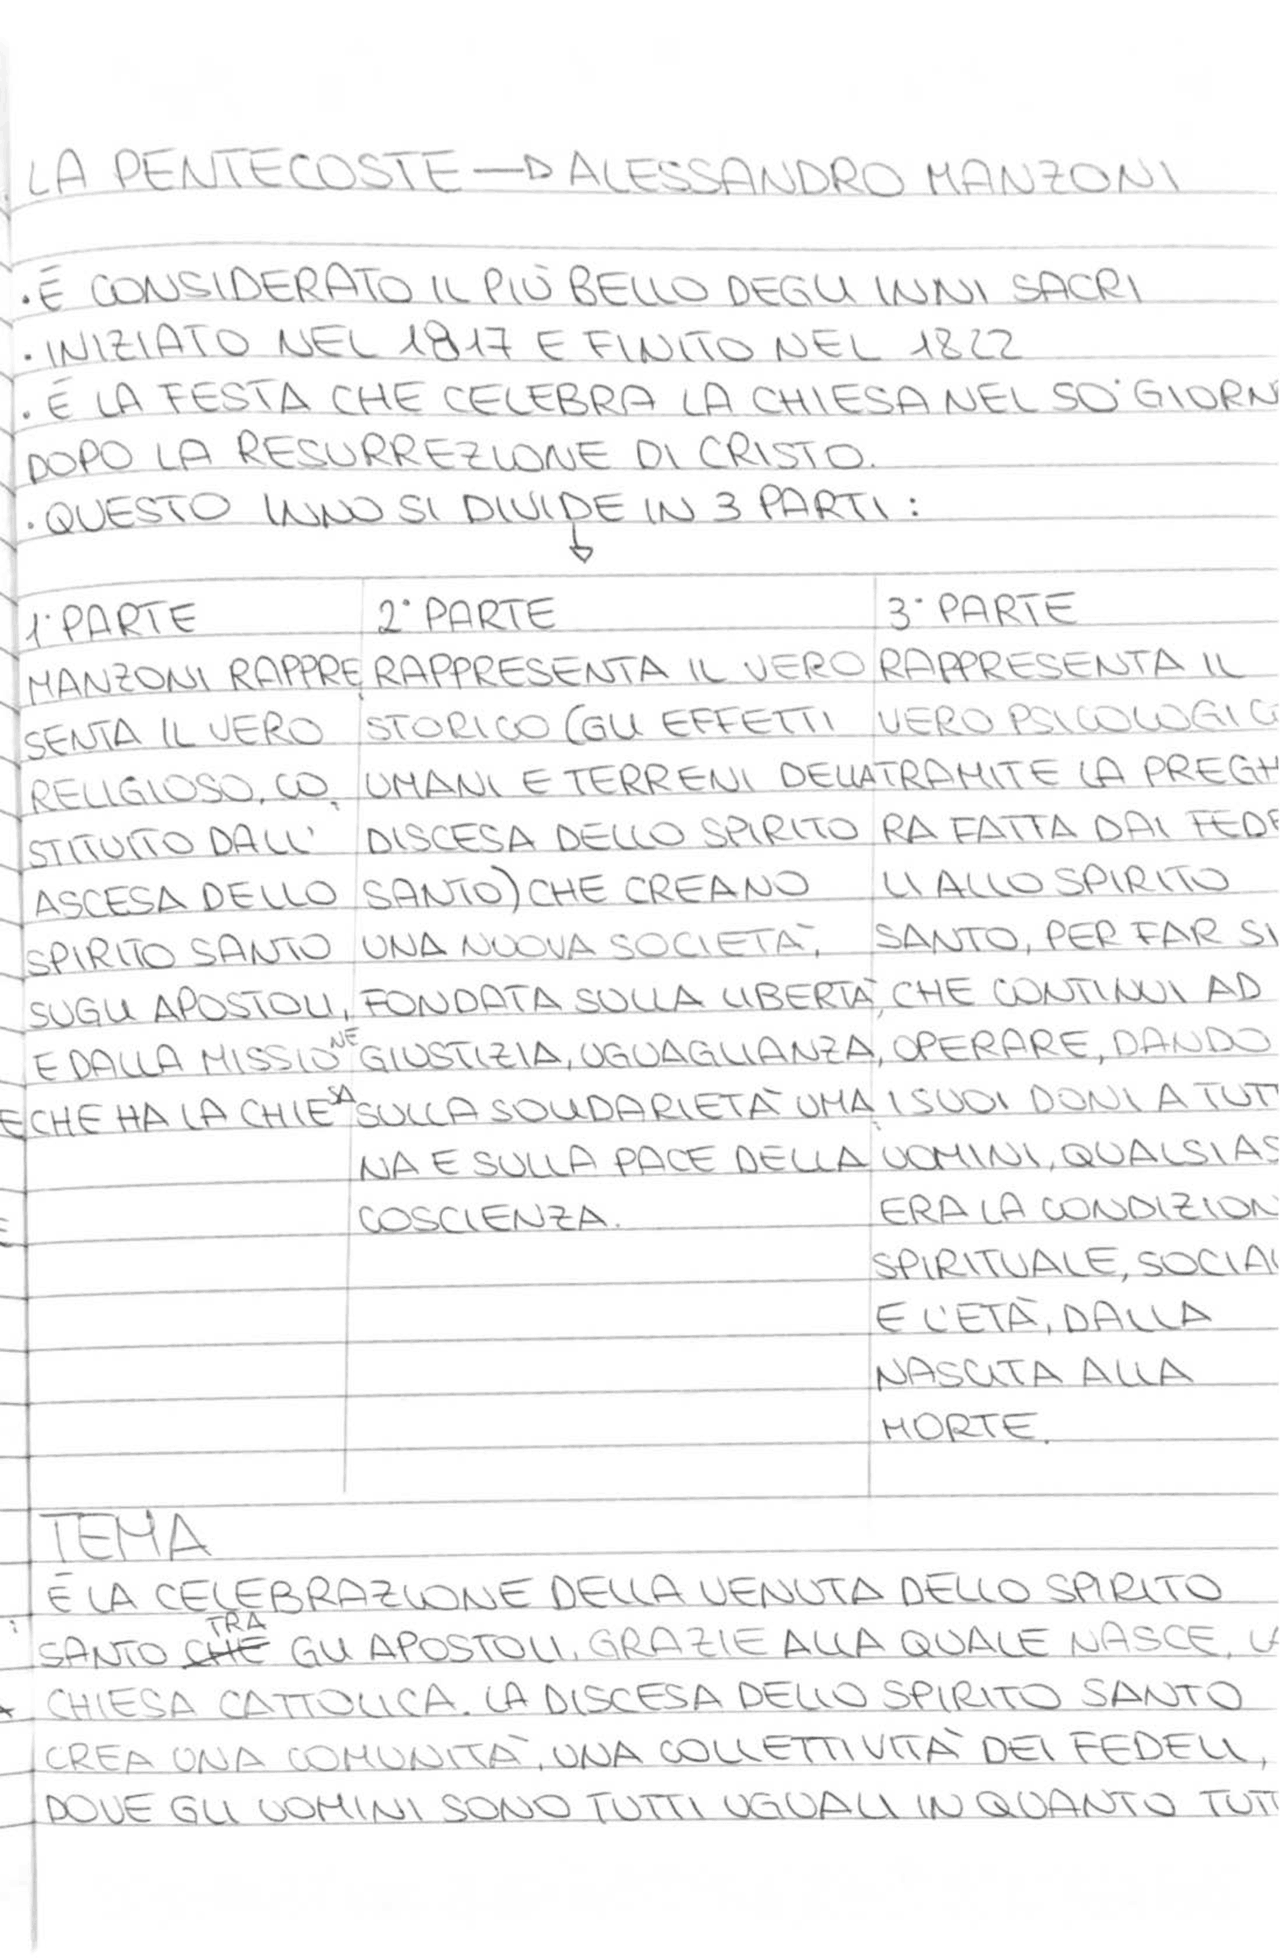 LA PENTECOSTE → ALESSANDRO MANZONI
· È CONSIDERATO IL PIÙ BELLO DEGLI INNI SACRI
· INIZIATO NEL 1817 E FINITO NEL 1822
· È LA FESTA CHE CELEBRA LA CHIESA NEL 50° GIORN
DOPO LA RESURREZIONE DI CRISTO.
· QUESTO INNO SI DIVIDE IN 3 PARTI :
↓
1° PARTE
MANZONI RAPPRE
SENTA IL VERO
RELIGIOSO, CO
STITUITO DALL'
ASCESA DELLO
SPIRITO SANTO
SUGLI APOSTOLI,
E DALLA MISSIONE
CHE HA LA CHIESA
2° PARTE
RAPPRESENTA IL VERO
STORICO (GLI EFFETTI
UMANI E TERRENI DELLA
DISCESA DELLO SPIRITO
SANTO) CHE CREANO
UNA NUOVA SOCIETÀ,
FONDATA SULLA LIBERTÀ,
GIUSTIZIA, UGUAGLIANZA,
SULLA SOLIDARIETÀ UMA
NA E SULLA PACE DELLA
COSCIENZA.
3° PARTE
RAPPRESENTA IL
VERO PSICOLOGIC
TRAMITE LA PREGH
RA FATTA DAI FEDE
LI ALLO SPIRITO
SANTO, PER FAR SI
CHE CONTINUI AD
OPERARE, DANDO
I SUOI DONI A TUTT
UOMINI, QUALSIAS
ERA LA CONDIZION
SPIRITUALE, SOCIAL
E L'ETÀ, DALLA
NASCITA ALLA
MORTE.
TEMA
È LA CELEBRAZIONE DELLA VENUTA DELLO SPIRITO
SANTO CHE TRA GLI APOSTOLI, GRAZIE ALLA QUALE NASCE, LA
CHIESA CATTOLICA. LA DISCESA DELLO SPIRITO SANTO
CREA UNA COMUNITÀ, UNA COLLETTIVITÀ DEI FEDELI,
DOVE GLI UOMINI SONO TUTTI UGUALI IN QUANTO TUTT